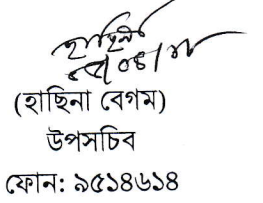 হাছিনা
(হাছিনা বেগম)
উপসচিব
ফোন: ৯৫১৪৬১৪